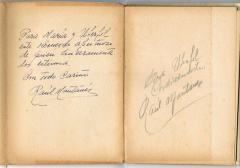 Para María y Wifil
este recuerdo afectuoso
de quien sinceramente
los estima
Con todo Cariño
Raúl Montañés
Para Wifil
Raúl Montañés